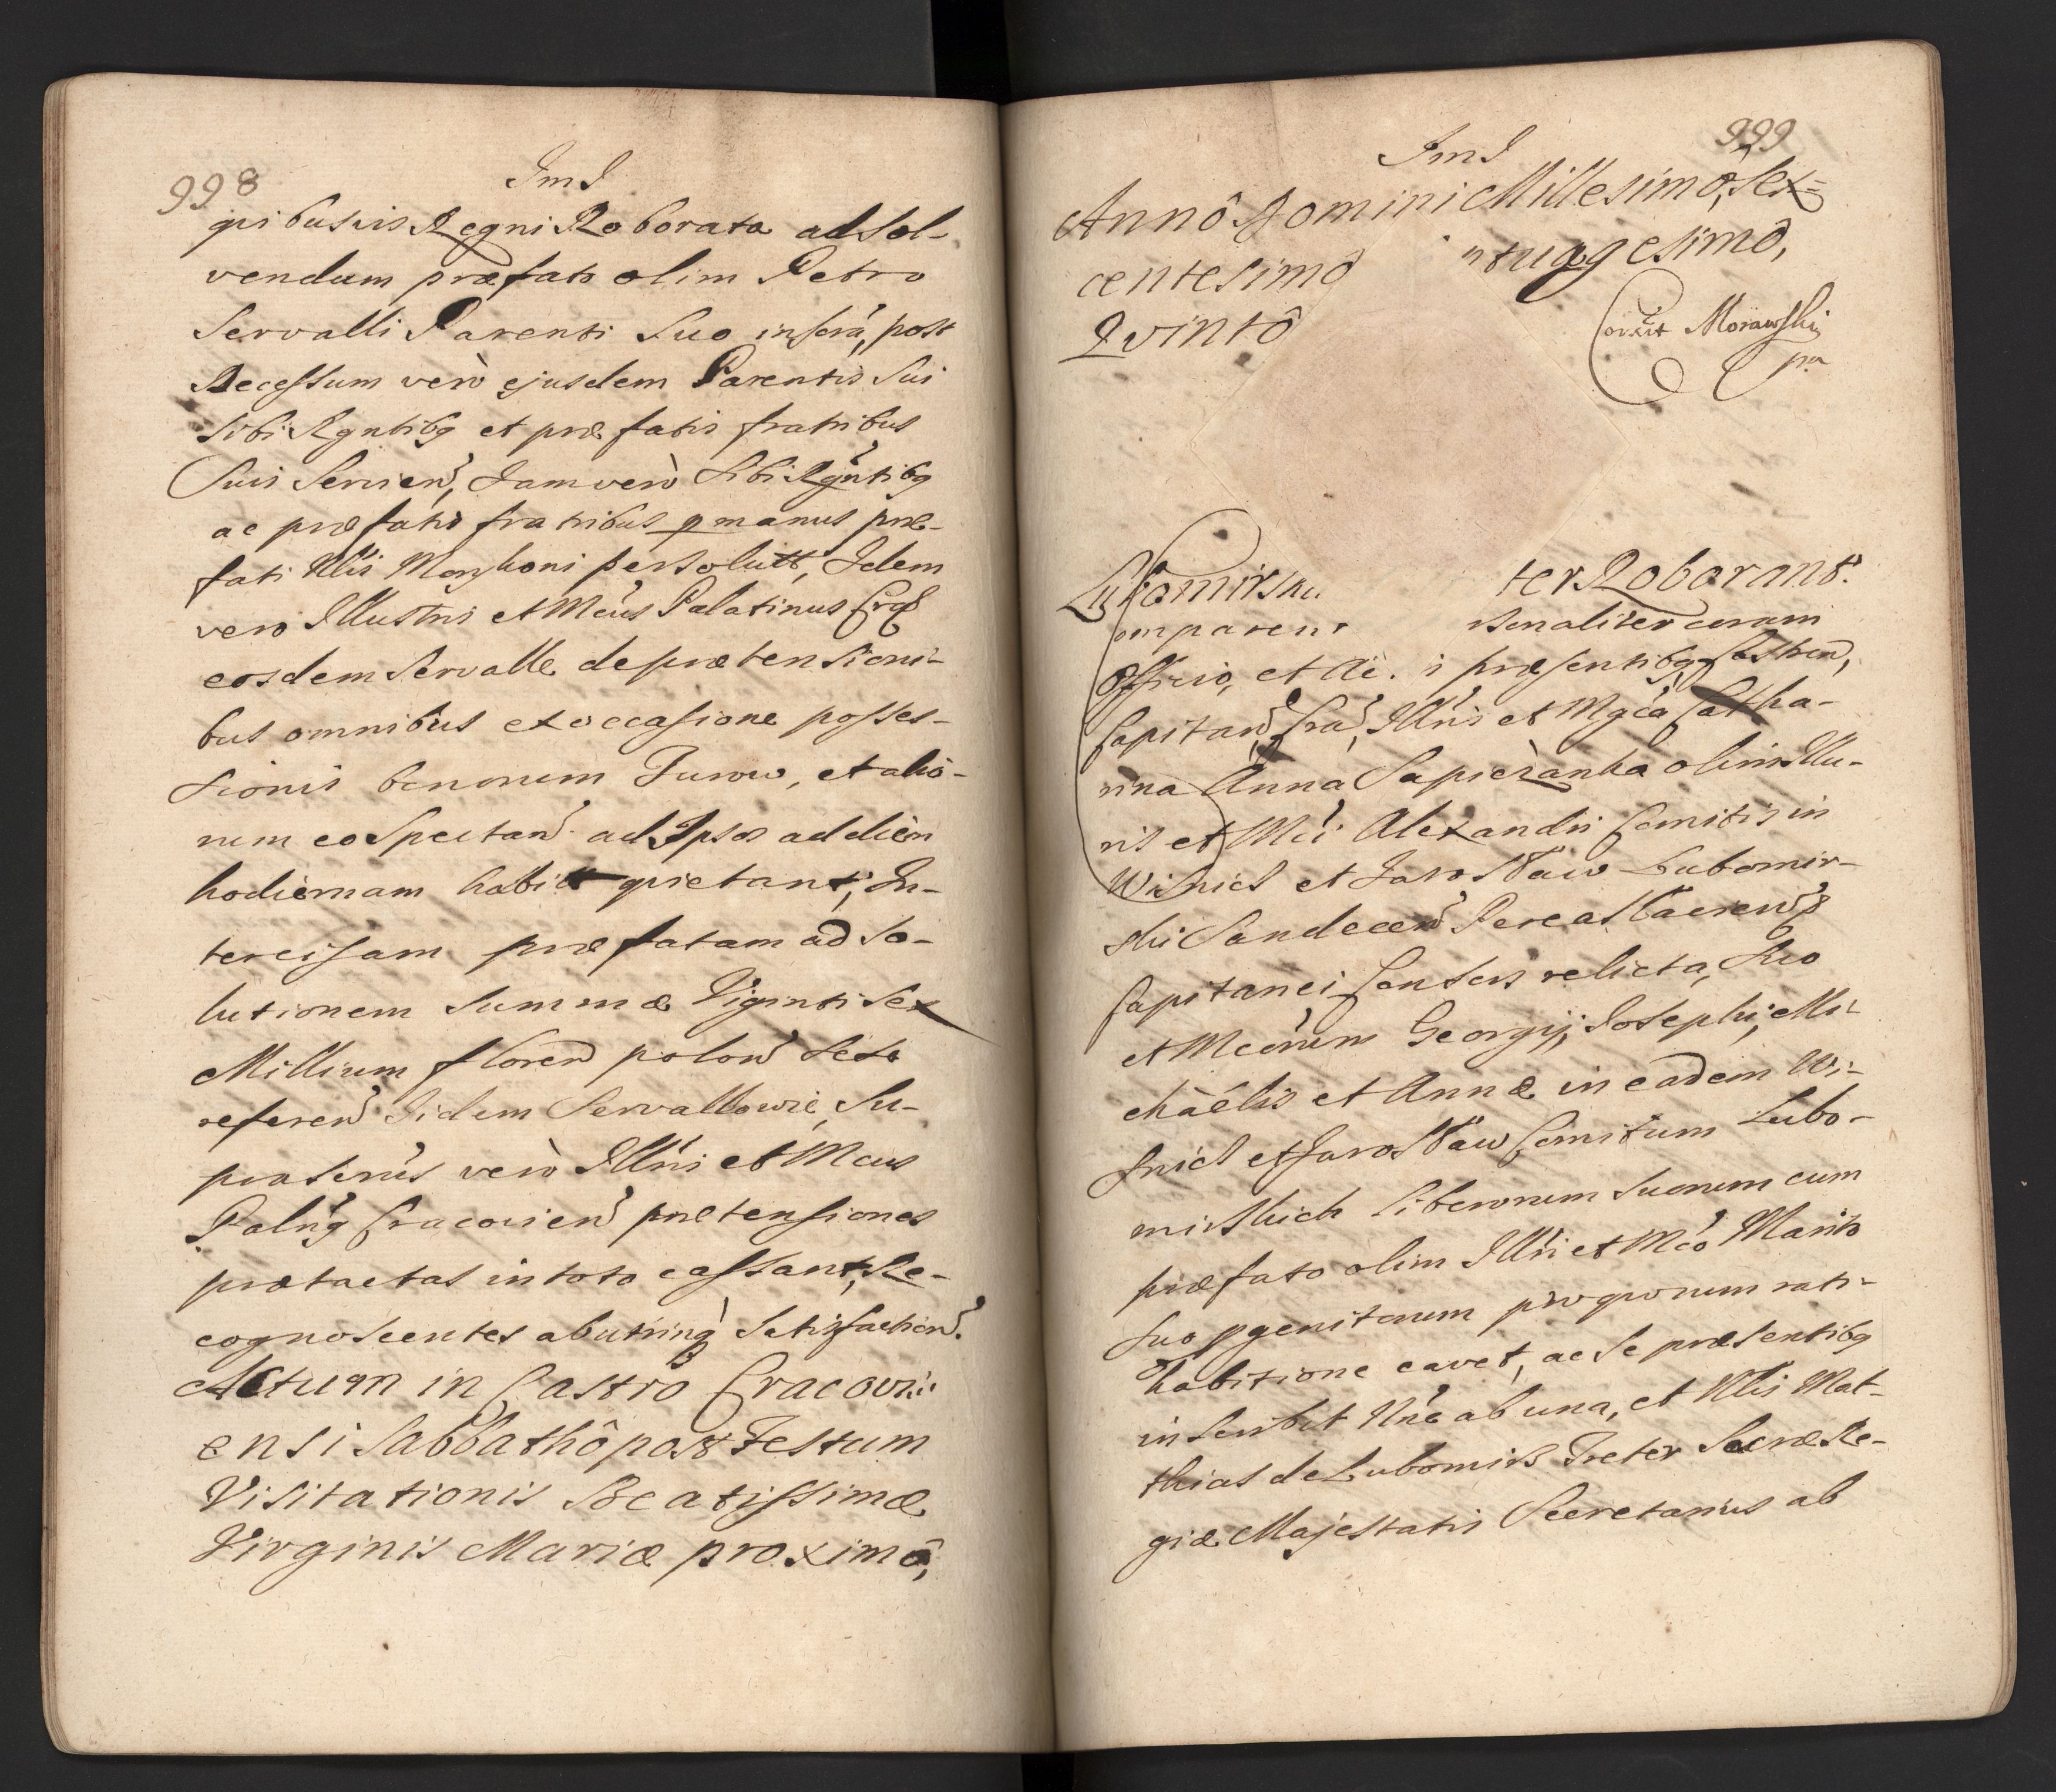 998
Jmd
quibusvis Regni Roborata adsol-
vendum præfato olim Petro
Servalli Parenti suo inscrá, post
Decessum verò ejusdem Parentis sui
sibi Rgntibq et præfatis fratribus
suis servien, Jam verò sibi Rgntibq
ac præfatis fratribus p manus præ-
fati Nlis persolutt, Idem
vero Illustris et Mcus Palatinus Crac
eosdem Servalle de prætensioni-
bus omnibus ex occasione posses-
sionis bonorum Turow, et alio-
rum eo spectan ad Ipsos ad diem
hodiernam habit quietant, In-
tercisam præfatam ad so-
lutionem summæ Viginti sex
Millium floren polon sese
referen Iidem Servallowie, su-
prascrus verò Illris et Mcus
Palnq Cracovien prætensiones
prætactas in toto cassant, Re-
cognoscentes ab utrinq satisfaction.
Actum in Castro Cracovi-
ensi Sabbathô post Festum
Visitationis Beatissimæ
Virginis Mariæ proximô,
999
Jmd
Annô Domini Millesimô, Sex-
centesimô ntuagesimô,
Qvintô
Corxit Morawski
pa
Lubomirska ter Roborant.
omparens rsonaliter coram
Officio, et Ac. i præsentibq Castren,
Capitan Cra, Illris et Mgca Catha-
rina Anna Sapiezanka olim Illu-
ris et Mci Alexandri Comitis in
Wisnicz et Jarosław Lubomir-
ski Sandecen Pereasławien
Capitanei Consors relicta, suo
et Mcorum Georgij, Josephi, Mi-
chàêlis et Annæ in eadem Wi-
snicz et Jarosław Comitum Lubo-
mirskich Liberorum suorum cum
præfato olim Illri et Mco Marito
suo pgenitorum pro quorum rati-
habitione cavet, ac se præsentibq
inscribit Nne ab una, et Nlis Mat-
thias de Lubomirz Treter Sacræ Re-
giæ Majestatis Secretarius ab